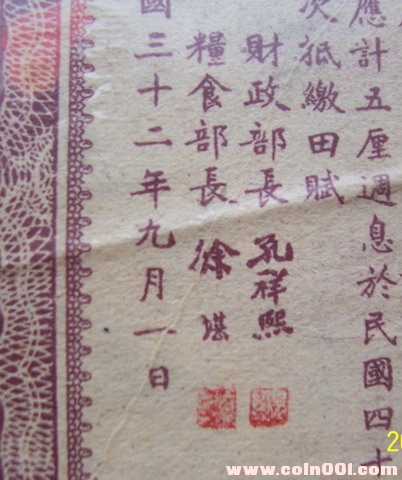 應計五厘週息於民國四十
次抵繳田賦
財政部長 孔祥熙
糧食部長 徐堪
國三十二年九月一日
www.coin001.com